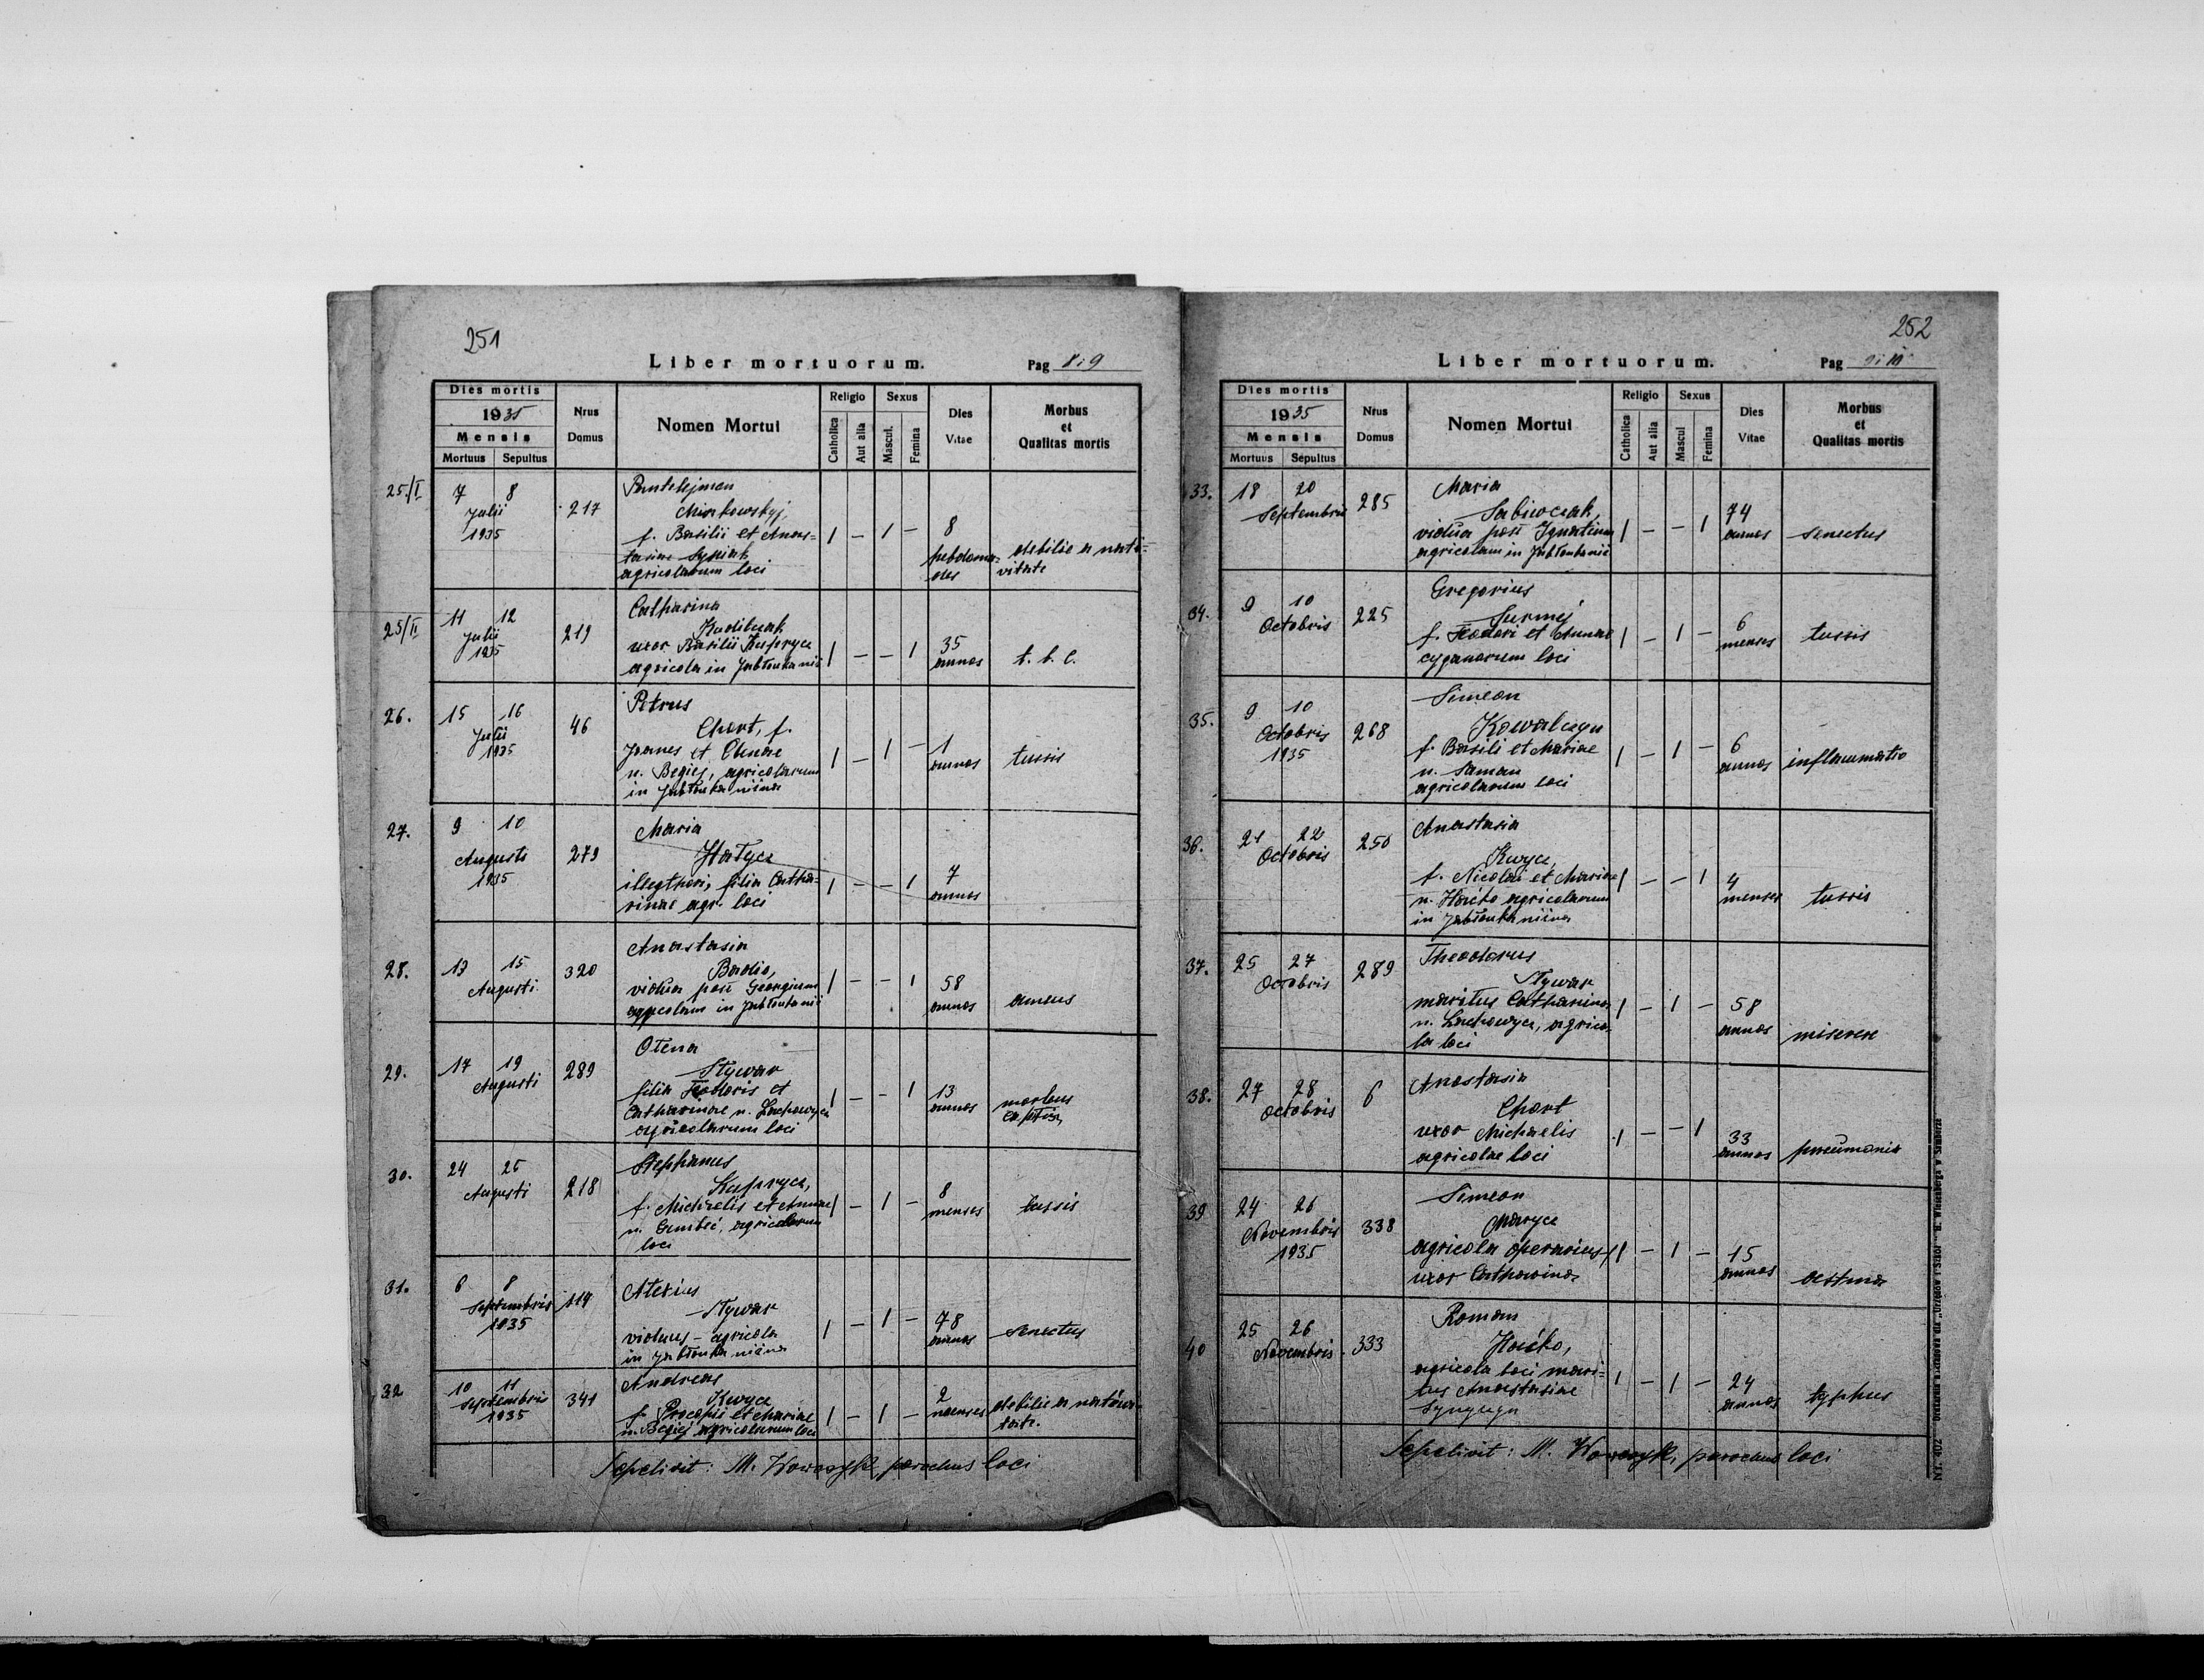 251
Liber mortuorum. Pag 8 i 9
Dies mortis
1935
Mensis
Mortuus Sepultus
Nrus Domus
Nomen Mortui
Religio
Catholica Aut alia
Sexus
Mascul. Femina
Dies Vitae
Morbus et Qualitas mortis
25/I 7 8 Julii 1935 217
Pantelejmon
f. Basilii et Anas-
tasiae Sypiak
agricolarum loci
1 — 1 — 8 hebdoma-
des
debilis a nati-
vitate
25/II 11 12 Julii 1935 219
Catharina
Kudibczak
uxor Basilii Kupryca
agricola in Jabłonka niż
1 — — 1 35 annos t. b. c.
26. 15 16 Julii 1935 46
Petrus
Chort, f.
Joannes et Annae
n. Begiej, agricolarum
in Jabłonka niżna
1 — 1 — 1 annos tussis
27. 9 10 Augusti 1935 279
Maria
Hatycz
illegthori, filia Catha-
rinae agr. loci
1 — — 1 7 annos
28. 13 15 Augusti 320
Anastasia
Badio,
vidua post Georgium
agricolam in Jabłonka niż
1 — — 1 58 annos
29. 17 19 Augusti 289
Olena
Stywar
filia Teodoris et
Catharinae n. Lachowycz
agricolarum loci
1 — — 1 13 annos morbus
30. 24 25 Augusti 218
Stephanus
Kaprycz,
f. Michaelis et Annae
agricolarum
loci
1 — 1 — 8 menses tussis
31. 6 8 Septembris 1935 114
Alexius
Stywar
viduus – agricola
in Jabłonka niżna
1 — 1 — 78 annos senectus
32 10 11 Septembris 1935 341
Andreas
Kwycz
f. Procopii et Mariae
n. Begiej agricolarum loci
1 — 1 — 2 menses debilis a nativi-
tate.
Sepelivit: M. parochus loci
252
Liber mortuorum. Pag
Dies mortis
1935
Mensis
Mortuus Sepultus
Nrus Domus
Nomen Mortui
Religio
Catholica Aut alia
Sexus
Mascul Femina
Dies Vitae
Morbus et Qualitas mortis
33. 18 20 Septembris 285
Maria
Sabiwczak,
vidua post Ignatium
agricolam in Jabłonka niż
1 — — 1 74 annos senectus
34. 9 10 Octobris 225
Gregorius
Surmej
f. Teodori et Annae
cyganorum loci
1 — 1 — 6 menses tussis
35. 9 10 Octobris 1935 268
Simeon
Kowalczyn
f. Basili et Mariae
n. Saman
agricolarum loci
1 — 1 — 6 annos inflammatio
36. 21 22 Octobris 250
Anastasia
Kwycz,
f. Nicolai et Mariae
n. Haćko agricolarum
in Jabłonka niżna
1 — — 1 4 menses tussis
37. 25 27 Octobris 289
Theodorus
Stywar
maritus Catharina
n. Lachowycz, agrico-
la loci
1 — 1 — 58 annos miserere
38. 27 28 Octobris 6
Anastasia
Chort
uxor Michaelis
agricolae loci
1 — — 1 33 annos pneumonia
39 24 26 Novembris 1935 338
Simeon
agricola operarius,
uxor Catharina
1 — 1 — 15 annos astma
40 25 26 Novembris 333
Roman
Haćko,
agricola loci mari-
tus Anastasiae
Synyczyn
1 — 1 — 24 annos typhus
Sepelivit: M. parochus loci
Nr. 402